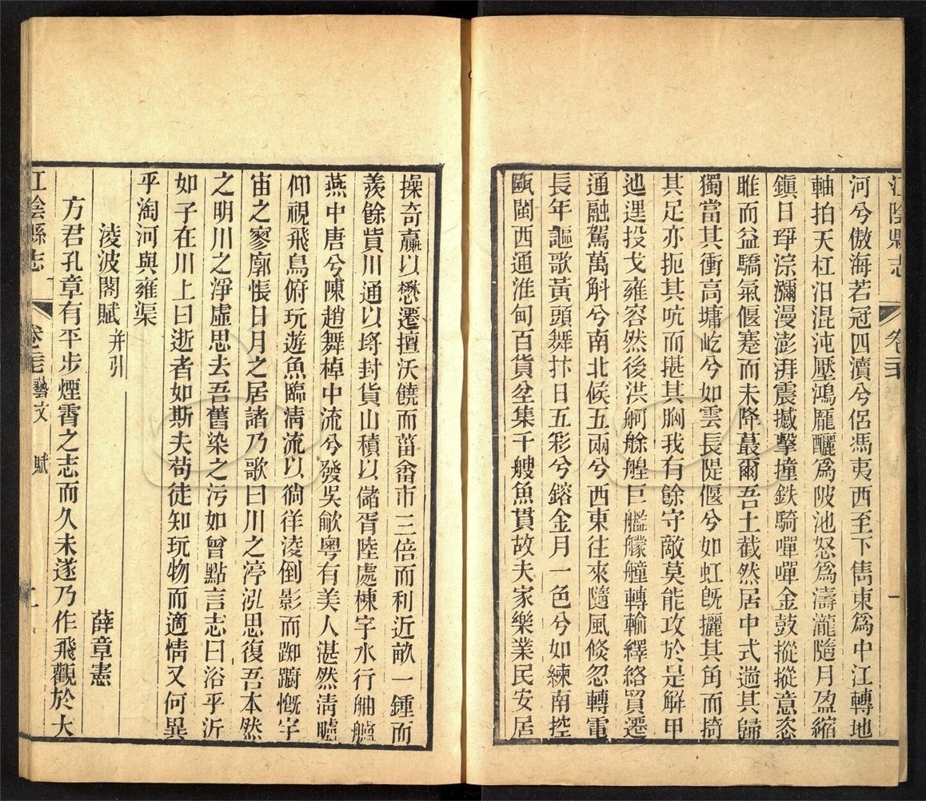 江陰縣志
卷二十
一
河兮傲海若冠四瀆兮侶馮夷西至下雋東爲中江轉地
軸拍天杠汨混沌壓鴻厖釃爲陂池怒爲濤瀧隨月盈縮
鎮日琤淙瀰漫澎湃震撼擊撞鉄騎嘽嘽金鼓摐摐意恣
睢而益驕氣偃蹇而未降蕞爾吾土截然居中式遏其歸
獨當其衝高墉屹兮如雲長隄偃兮如虹旣攦其角而掎
其足亦扼其吭而揕其胸我有餘守敵莫能攻於是解甲
迆逕投戈雍容然後洪舸艅艎巨艦艨艟轉輸繹絡貿遷
通融駕萬斛兮南北候五兩兮西東往來隨風倐忽轉電
長年謳歌黃頭舞抃日五彩兮鎔金月一色兮如練南控
甌閩西通淮甸百貨坌集千艘魚貫故夫家樂業民安居
操奇贏以懋遷擅沃饒而菑畬市三倍而利近畝一鍾而
羨餘貲川通以埒封貨山積以儲胥陸處棟宇水行舳艫
燕中唐兮陳趙舞棹中流兮發吳歈粵有美人湛然清臞
仰視飛鳥俯玩遊魚臨清流以徜徉淩倒影而踟躕慨宇
宙之寥廓悵日月之居諸乃歌曰川之渟泓思復吾本然
之明川之淨虛思去吾舊染之污如曾點言志曰浴乎沂
如子在川上曰逝者如斯夫苟徒知玩物而適情又何異
乎淘河與雍渠
淩波閣賦 并引
薛章憲
方君孔章有平步煙霄之志而久未遂乃作飛觀於大
江陰縣志
藝文
賦